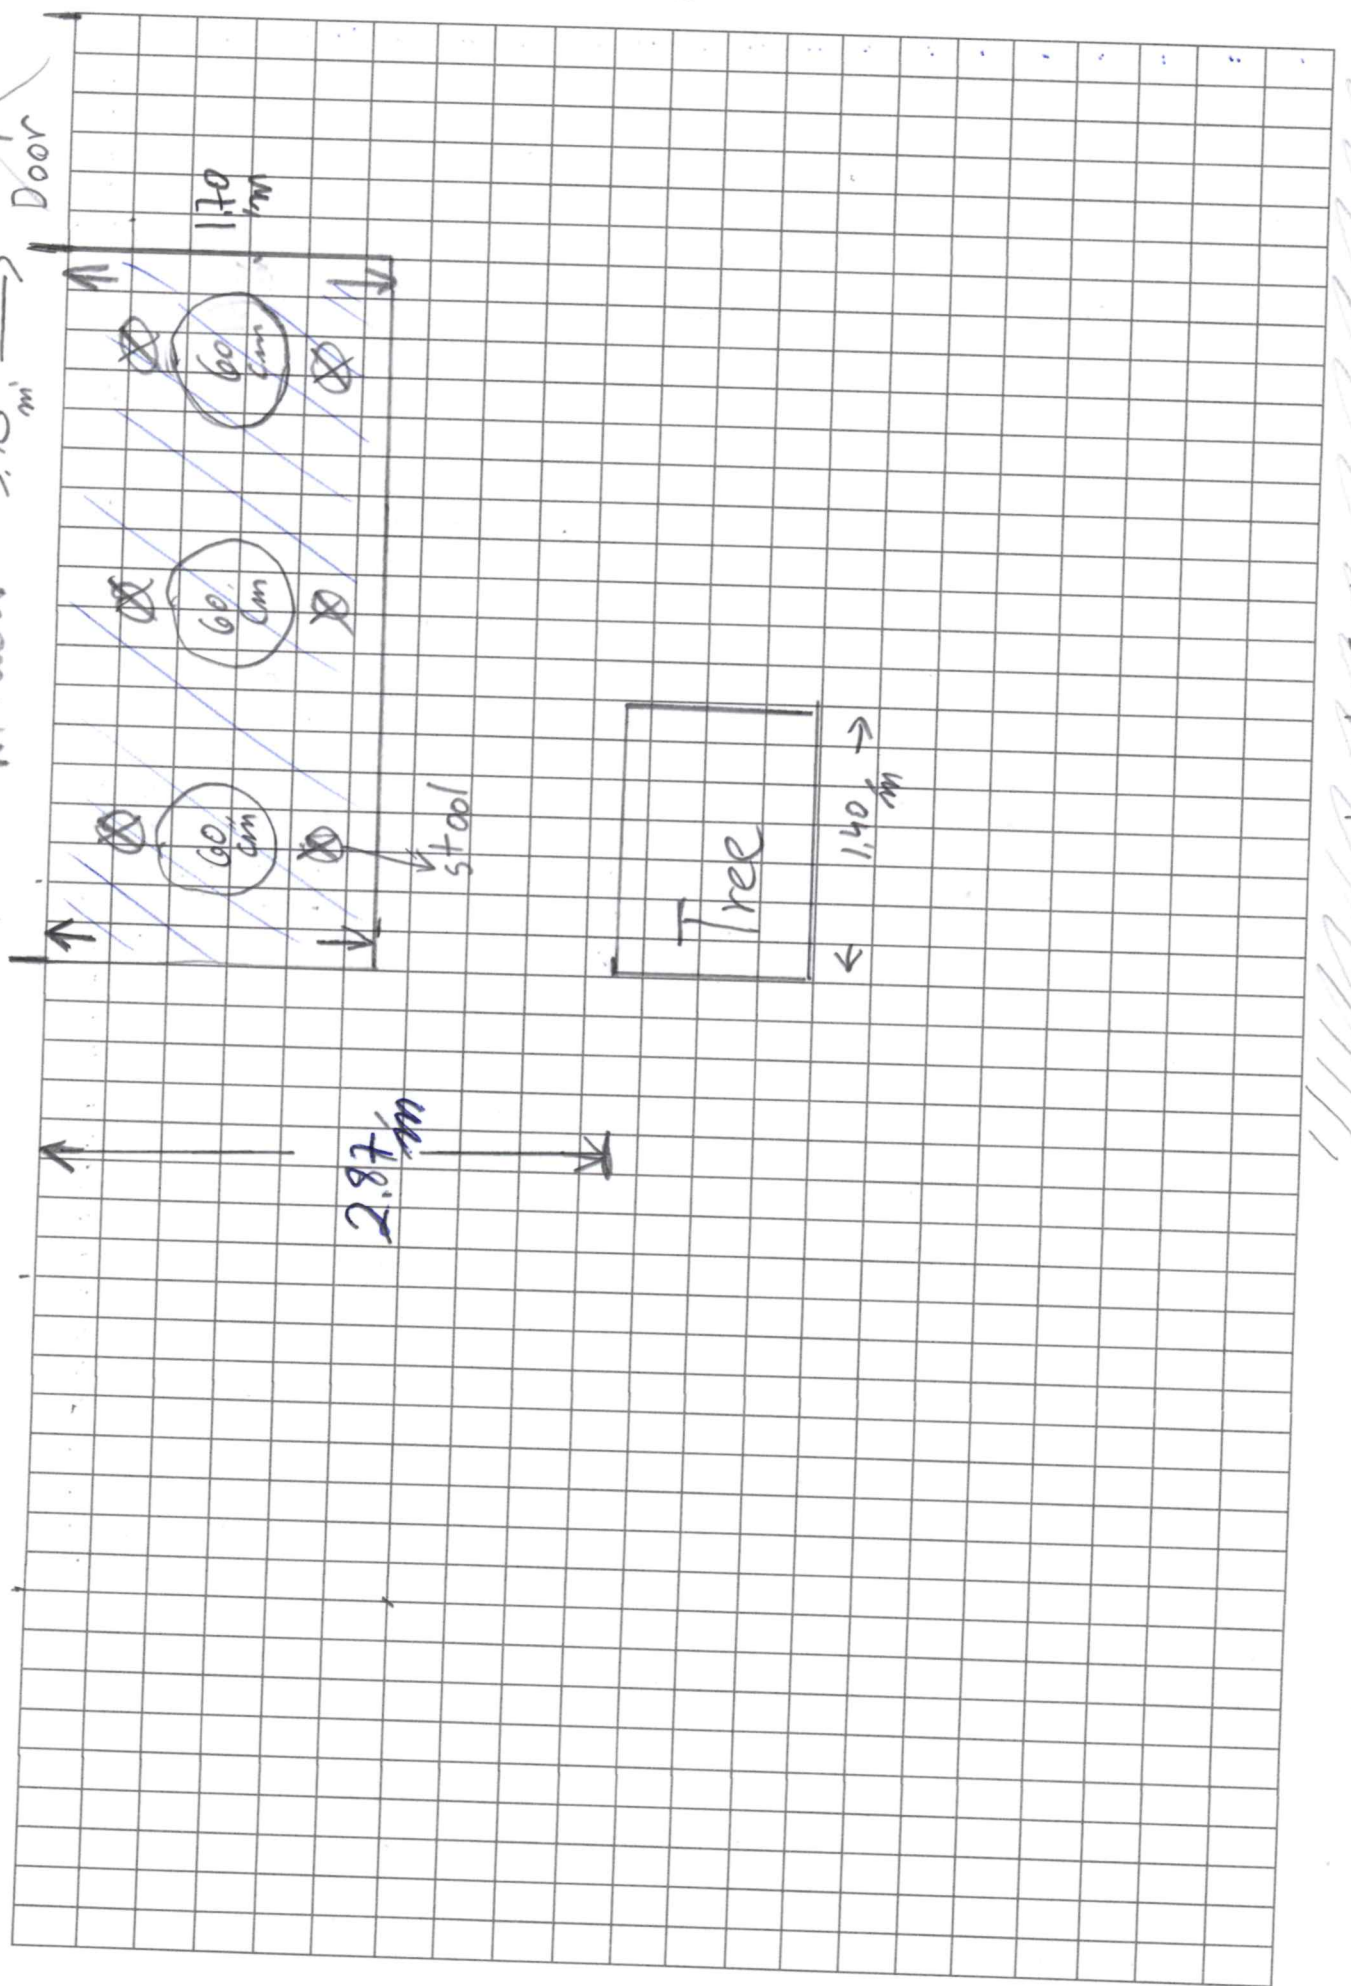 Door
1.70
m
60
cm
60
cm
60
cm
stool
Tree
1.40
m
2.87
m